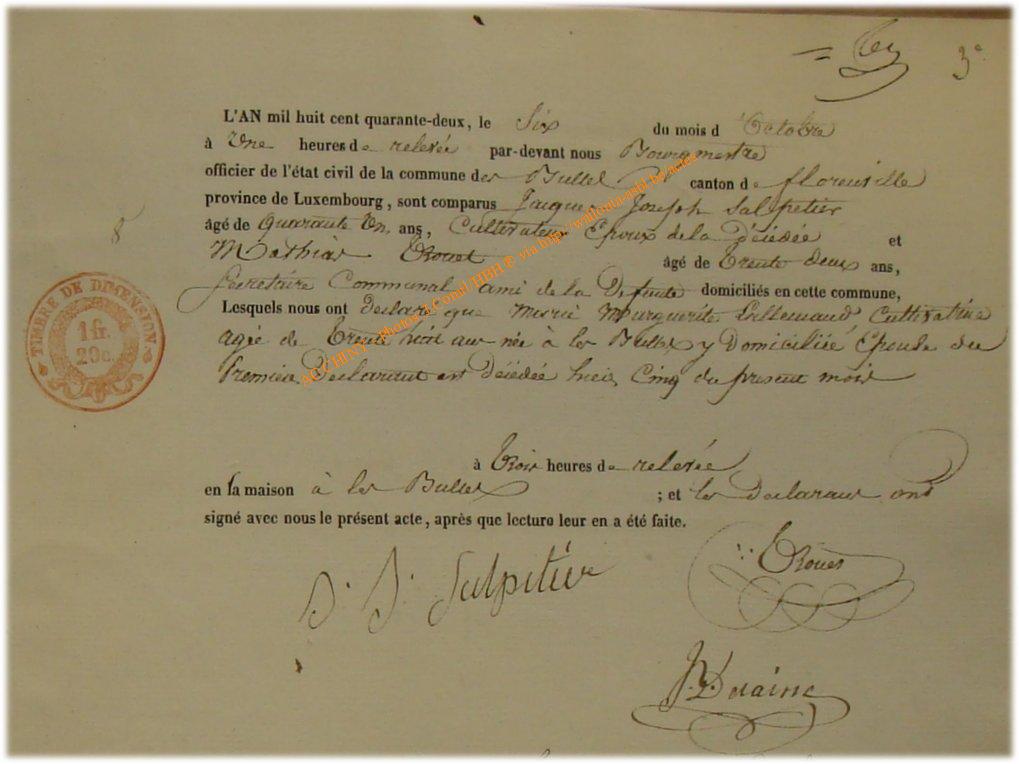 3e
L'AN mil huit cent quarante-deux, le Six du mois d'Octobre
à Une heures de relevée par-devant nous Bourgmestre
officier de l'état civil de la commune des Bulles canton de florenville
province de Luxembourg, sont comparus Jacques Joseph Salpetier
âgé de Quarante Un ans, Cultivateur Epoux de la Décédée et
Mathias Trouet âgé de Trente deux ans,
8
Secretaire Communal ami de la Defunte domiciliés en cette commune,
Lesquels nous ont Declaré que Marie Marguerite Lillemaud Cultivatrice
agée de Trente ans née à les Bulles y Domiciliée Epouse du
Premier Declarant est Décédée hier Cinq du present mois
TIMBRE DE DIMENSION
1 fr.
20 c.
à Trois heures de relevée
en la maison à les Bulles ; et les Declarans ont
signé avec nous le présent acte, après que lecture leur en a été faite.
J. J. Salpetier
Trouet